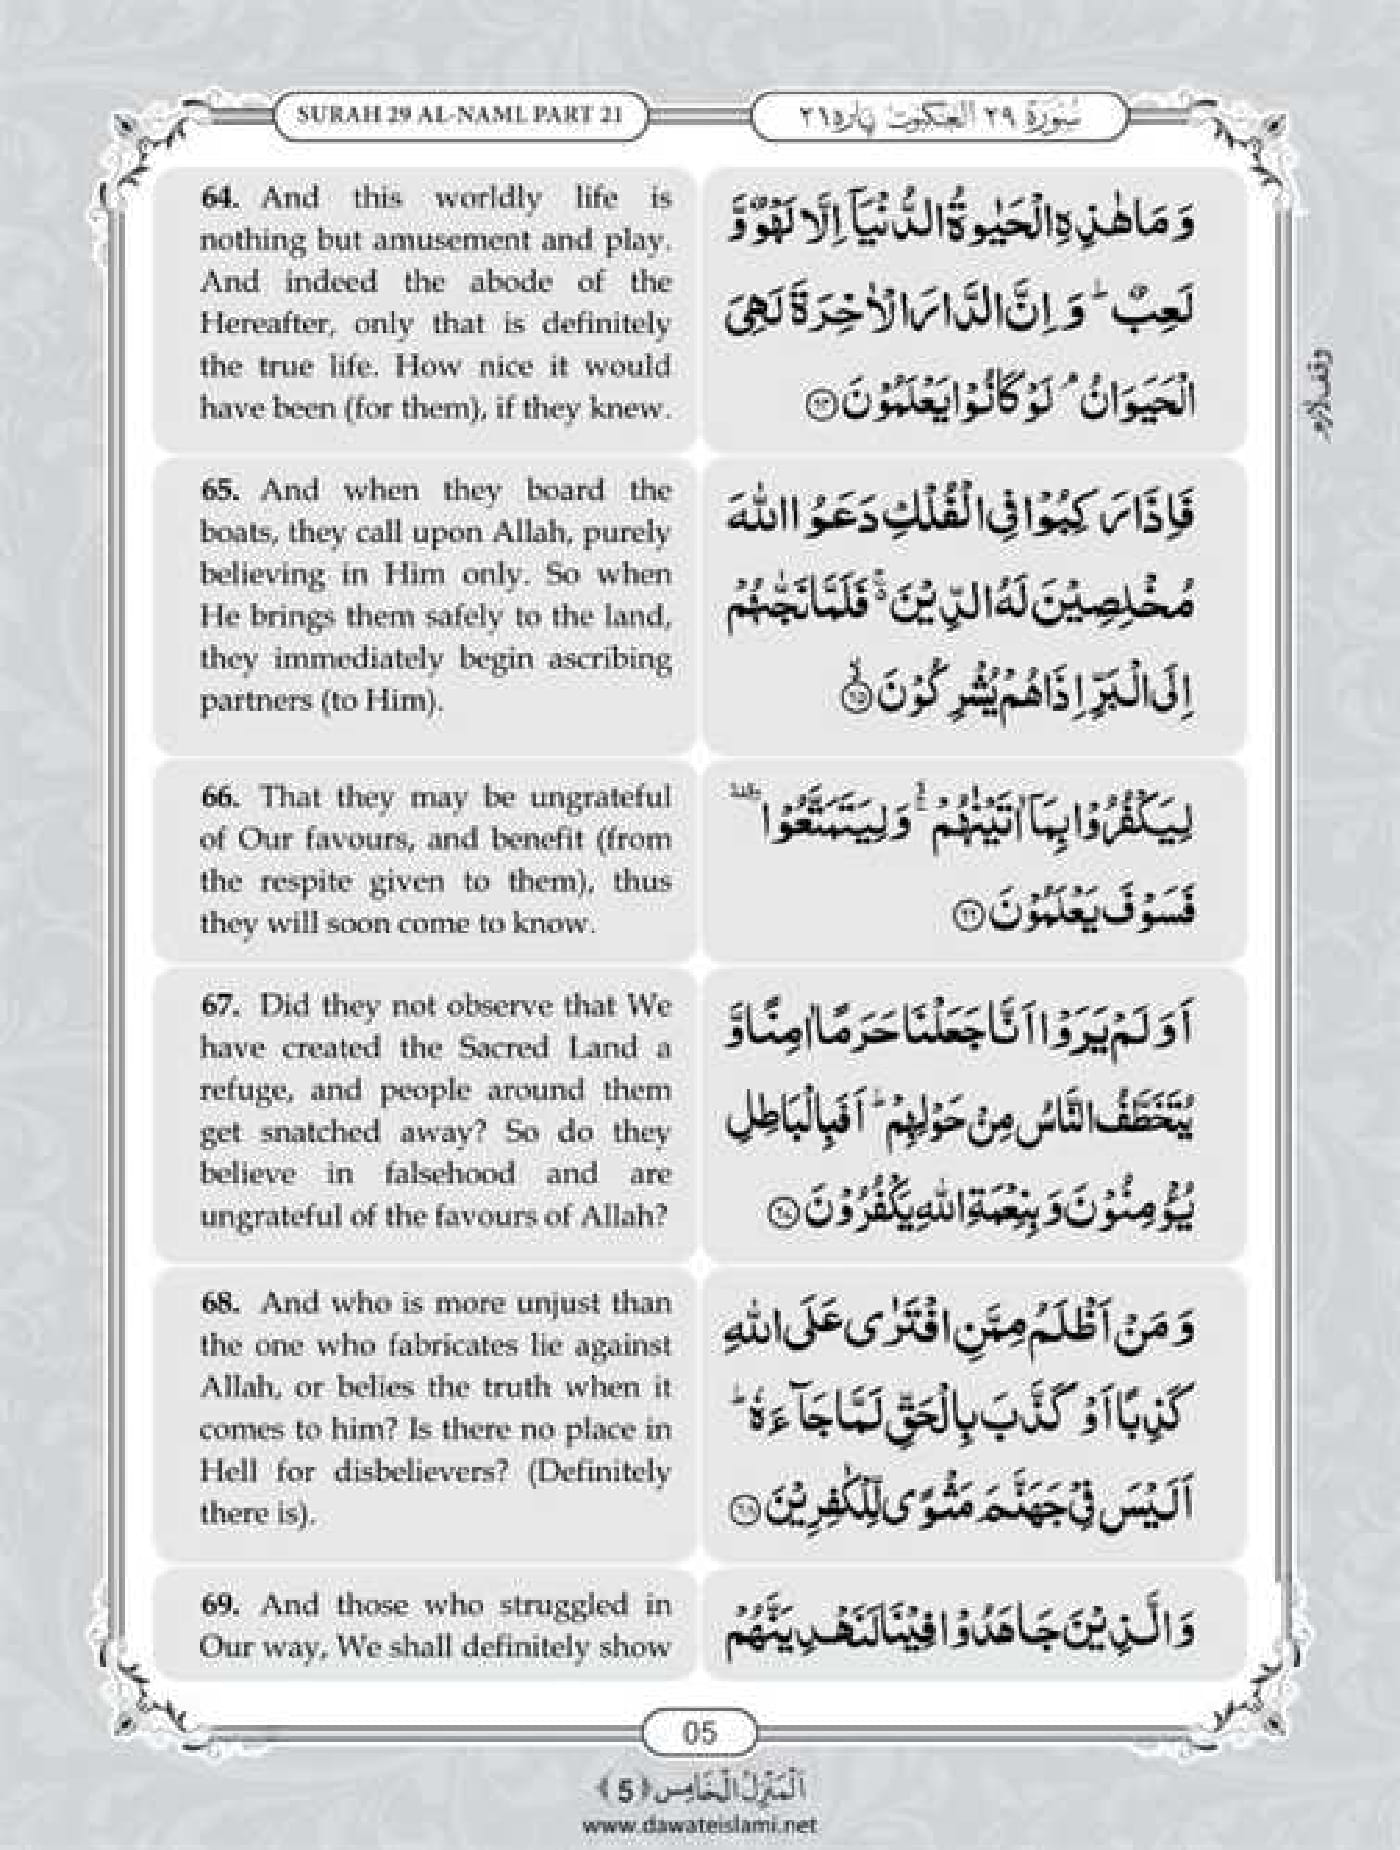 SURAH 29 AL-NAML PART 21
سُوْرَة ٢٩ العنكبوت پاره٢١
64. And this worldly life is
nothing but amusement and play.
And indeed the abode of the
Hereafter, only that is definitely
the true life. How nice it would
have been (for them), if they knew.
وَ مَا هٰذِهِ الْحَیٰوةُ الدُّنْیَاۤ اِلَّا لَهْوٌ وَّ
لَعِبٌ ؕ وَ اِنَّ الدَّارَ الْاٰخِرَةَ لَهِیَ
الْحَیَوَانُ ۘ لَوْ كَانُوْا یَعْلَمُوْنَ ﴿۶۴﴾
وقف لازم
65. And when they board the
boats, they call upon Allah, purely
believing in Him only. So when
He brings them safely to the land,
they immediately begin ascribing
partners (to Him).
فَاِذَا رَكِبُوْا فِی الْفُلْكِ دَعَوُا اللّٰهَ
مُخْلِصِیْنَ لَهُ الدِّیْنَ ۚ۬ فَلَمَّا نَجّٰىهُمْ
اِلَی الْبَرِّ اِذَا هُمْ یُشْرِكُوْنَ ﴿ۙ۶۵﴾
66. That they may be ungrateful
of Our favours, and benefit (from
the respite given to them), thus
they will soon come to know.
لِیَكْفُرُوْا بِمَاۤ اٰتَیْنٰهُمْ ۚۙ وَ لِیَتَمَتَّعُوْا ٝ
فَسَوْفَ یَعْلَمُوْنَ ﴿۶۶﴾
67. Did they not observe that We
have created the Sacred Land a
refuge, and people around them
get snatched away? So do they
believe in falsehood and are
ungrateful of the favours of Allah?
اَوَ لَمْ یَرَوْا اَنَّا جَعَلْنَا حَرَمًا اٰمِنًا وَّ
یُتَخَطَّفُ النَّاسُ مِنْ حَوْلِهِمْ ؕ اَفَبِالْبَاطِلِ
یُؤْمِنُوْنَ وَ بِنِعْمَةِ اللّٰهِ یَكْفُرُوْنَ ﴿۶۷﴾
68. And who is more unjust than
the one who fabricates lie against
Allah, or belies the truth when it
comes to him? Is there no place in
Hell for disbelievers? (Definitely
there is).
وَ مَنْ اَظْلَمُ مِمَّنِ افْتَرٰى عَلَی اللّٰهِ
كَذِبًا اَوْ كَذَّبَ بِالْحَقِّ لَمَّا جَآءَهٗ ؕ
اَلَیْسَ فِیْ جَهَنَّمَ مَثْوًی لِّلْكٰفِرِیْنَ ﴿۶۸﴾
69. And those who struggled in
Our way, We shall definitely show
وَ الَّذِیْنَ جَاهَدُوْا فِیْنَا لَنَهْدِیَنَّهُمْ
05
اَلْمَنْزِلُ الْخَامِس ﴿5﴾
www.dawateislami.net